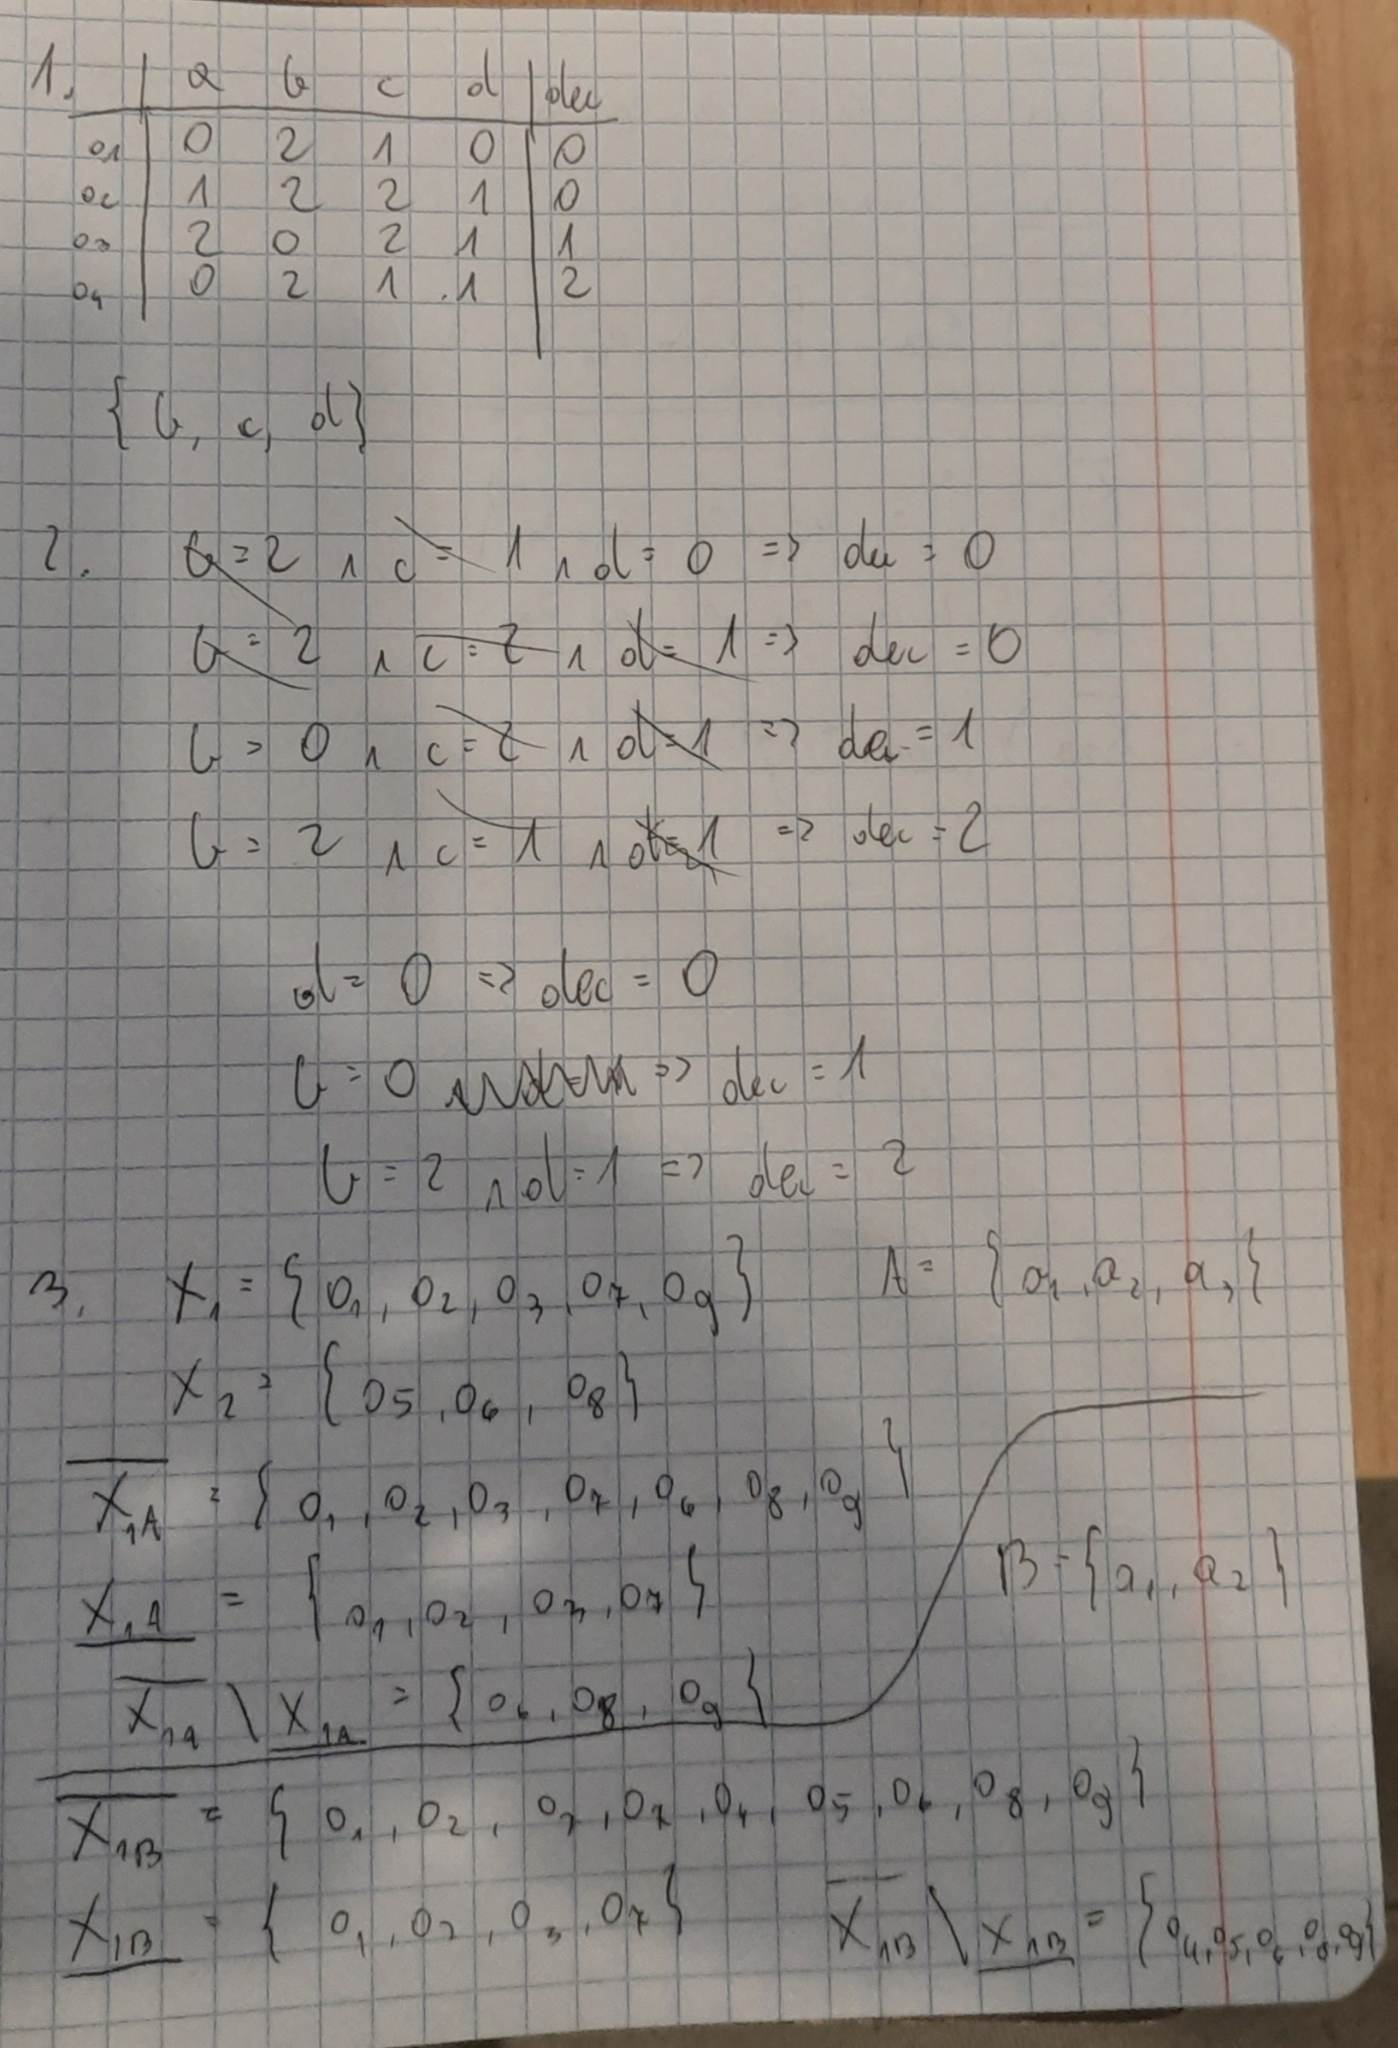 1. a b c d dec
o1 0 2 1 0 0
o2 1 2 2 1 0
o3 2 0 2 1 1
o4 0 2 1 1 2
{b, c, d}
2. b = 2 ∧ c = 1 ∧ d = 0 => dec = 0
b = 2 ∧ c = 2 ∧ d = 1 => dec = 0
b = 0 ∧ c = 2 ∧ d = 1 => dec = 1
b = 2 ∧ c = 1 ∧ d = 1 => dec = 2
d = 0 => dec = 0
b = 0 => dec = 1
b = 2 ∧ d = 1 => dec = 2
3. X₁ = {o₁, o₂, o₃, o₇, o₉} A = {a₁, a₂, a₃}
X₂ = {o₅, o₆, o₈}
X̅₁A = {o₁, o₂, o₃, o₇, o₆, o₈, o₉}
X̲₁A = {o₁, o₂, o₃, o₇}
B = {a₁, a₂}
X̅₁A \ X̲₁A = {o₆, o₈, o₉}
X̅₁B = {o₁, o₂, o₃, o₇, o₄, o₅, o₆, o₈, o₉}
X̲₁B = {o₁, o₂, o₃, o₇} X̅₁B \ X̲₁B = {o₄, o₅, o₆, o₈, o₉}